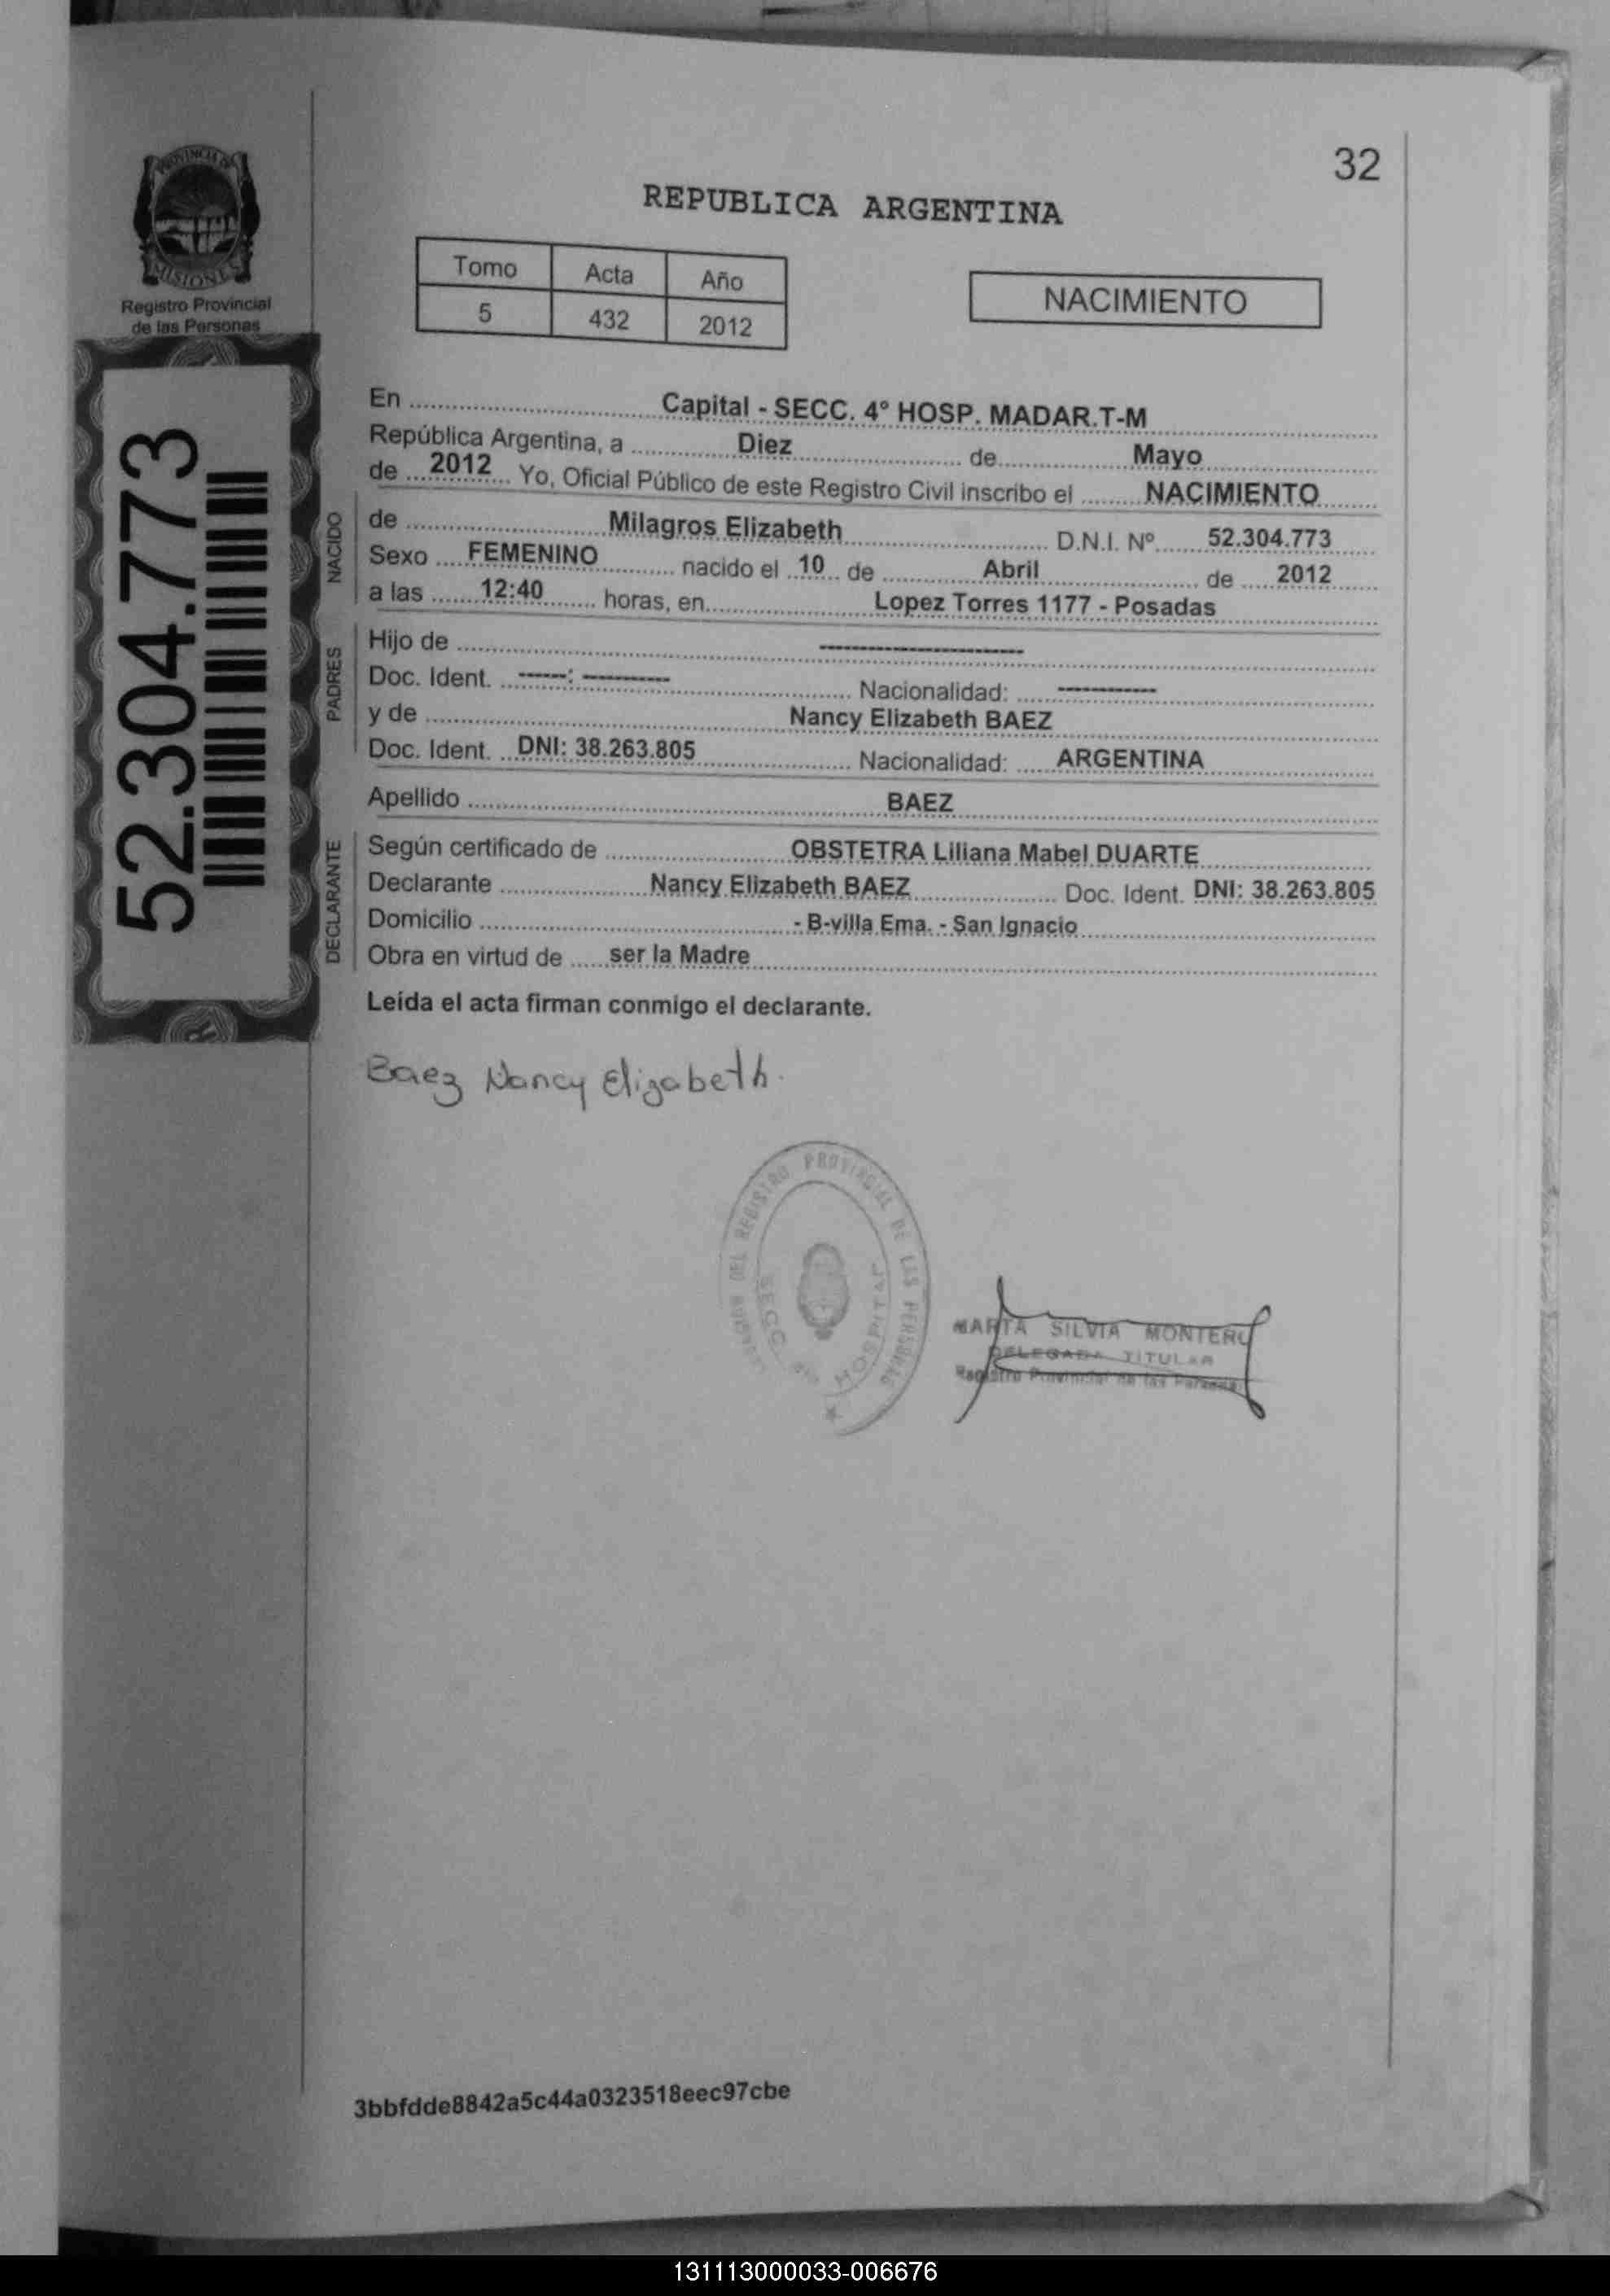 32
PROVINCIA DE
MISIONES
Registro Provincial
de las Personas
REPUBLICA ARGENTINA
Tomo Acta Año
5 432 2012
NACIMIENTO
52.304.773
En Capital - SECC. 4° HOSP. MADAR.T-M
República Argentina, a Diez de Mayo
de 2012 Yo, Oficial Público de este Registro Civil inscribo el NACIMIENTO
NACIDO
de Milagros Elizabeth D.N.I. Nº 52.304.773
Sexo FEMENINO nacido el 10 de Abril de 2012
a las 12:40 horas, en Lopez Torres 1177 - Posadas
PADRES
Hijo de --------------------
Doc. Ident. -----: --------- Nacionalidad: ----------
y de Nancy Elizabeth BAEZ
Doc. Ident. DNI: 38.263.805 Nacionalidad: ARGENTINA
Apellido BAEZ
DECLARANTE
Según certificado de OBSTETRA Liliana Mabel DUARTE
Declarante Nancy Elizabeth BAEZ Doc. Ident. DNI: 38.263.805
Domicilio - B-villa Ema. - San Ignacio
Obra en virtud de ser la Madre
Leída el acta firman conmigo el declarante.
Baez Nancy Elizabeth.
DEL REGISTRO PROVINCIAL DE LAS PERSONAS
SECC. HOSPITAL
MARTA SILVIA MONTERO
DELEGADA TITULAR
Registro Provincial de las Personas
3bbfdde8842a5c44a0323518eec97cbe
131113000033-006676